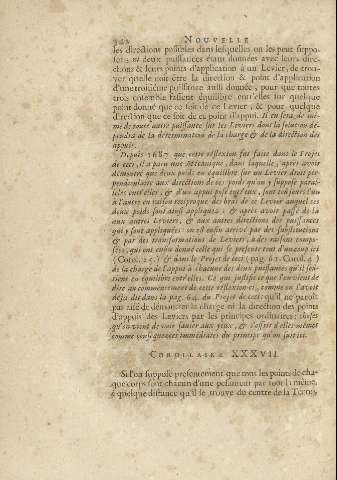 342 NOUVELLE
les directions possibles dans lesquelles on les peut suppo-
ser : ni deux puissances étant données avec leurs dire-
ctions & leurs points d'application à un Levier, de trou-
ver quelle doit être la direction & point d'application
d'une troisième puissance aussi donnée, pour que toutes
trois ensemble fassent équilibre entr'elles sur quelque
point donné que ce soit de ce Levier, & pour quelque
direction que ce soit de ce point d'appui. Il en sera de mê-
me de toute autre puissante sur les Leviers dont la solution dé-
pendra de la détermination de la charge & de la direction des
appuis.
Depuis 1687. que cette réflexion fut faite dans le Projet
de ceci, il a paru une Méchanique, dans laquelle, après avoir
démontré que deux poids en équilibre sur un Levier droit per-
pendiculaire aux directions de ces poids qu'on y suppose paral-
leles entr'elles, & d'un appui posé entr'eux, sont toûjours l'un
à l'autre en raison réciproque des bras de ce Levier ausquels ces
deux poids sont ainsi appliquez ; & après avoir passé de-là
aux autres Leviers, & aux autres directions des puissances
qui y sont appliquées : on est enfin arrivé par des substitutions
& par des transformations de Leviers, à des raisons compo-
sées, qui ont enfin donné celle qui se présente tout d'un coup ici
(Corol. 25.) & dans le Projet de ceci (pag. 61. Corol. 4.)
de la charge de l'appui à chacune des deux puissances qu'il soû-
tient en équilibre entr'elles. Ce qui justifie ce que je viens de
dire au commencement de cette réflexion-ci, comme je l'avois
déja dit dans la pag. 64. du Projet de ceci : qu'il ne paroît
pas aisé de démontrer la charge ni la direction des points
d'appuis des Leviers par les principes ordinaires : choses
qu'on vient de voir sauter aux yeux, & s'offrir d'elles-mêmes
comme conséquences immédiates du principe qu'on suit ici.
COROLLAIRE XXXVII.
Si l'on suppose présentement que tous les points de cha-
que corps sont chacun d'une pesanteur par tout la même,
à quelque distance qu'il se trouve du centre de la Terre,